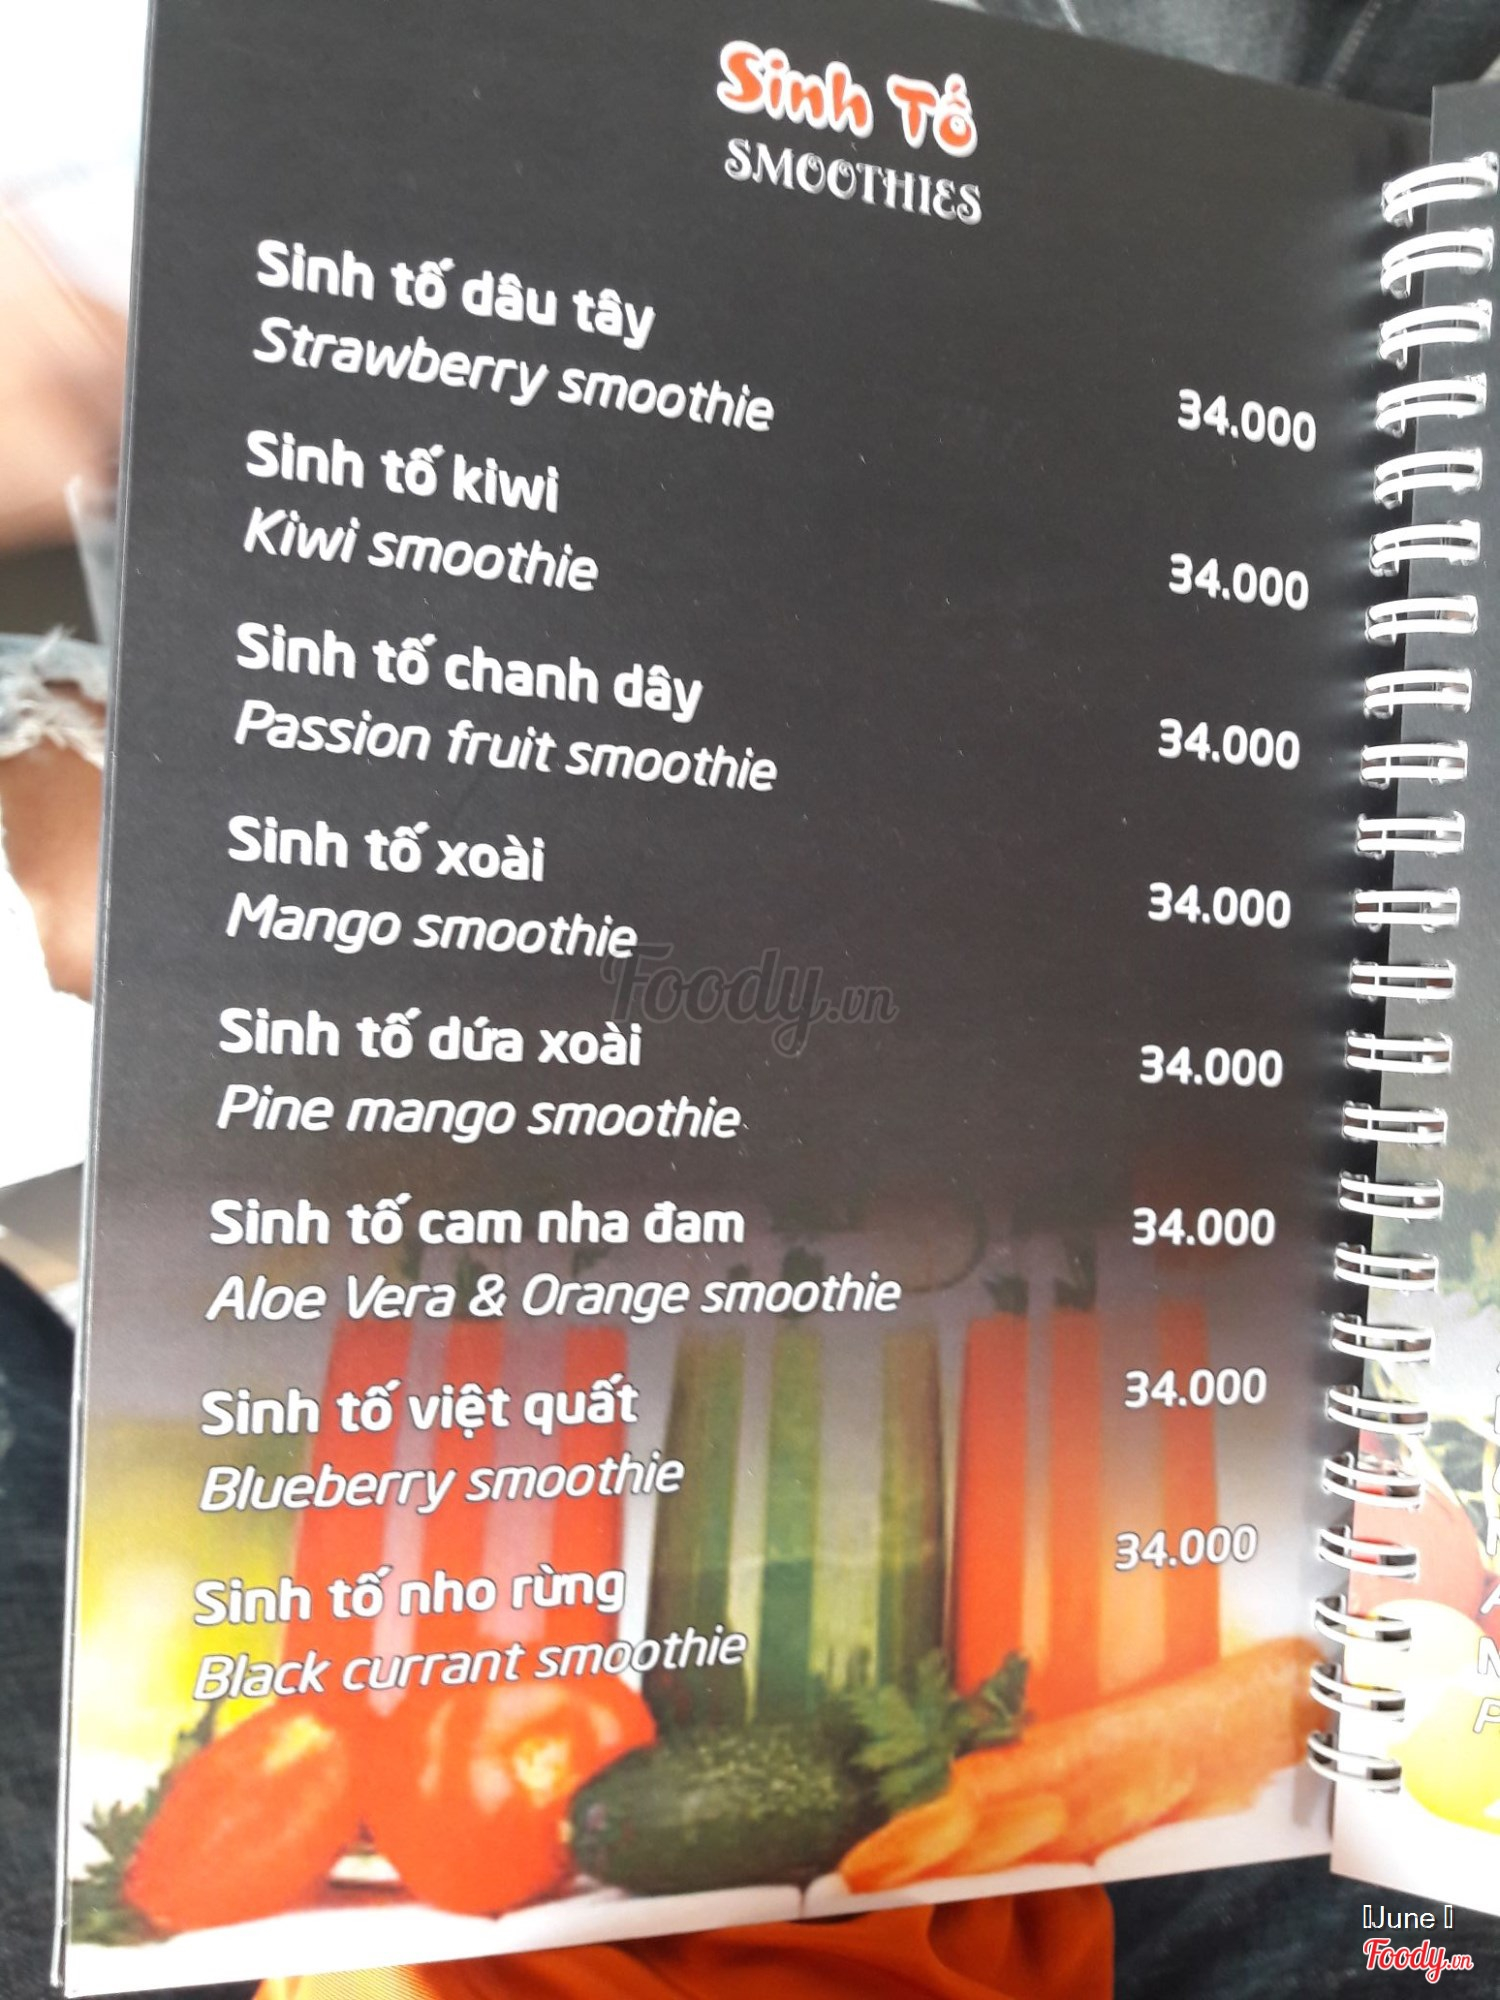 Sinh Tố
SMOOTHIES
Sinh tố dâu tây
Strawberry smoothie
34.000
Sinh tố kiwi
Kiwi smoothie
34.000
Sinh tố chanh dây
Passion fruit smoothie
34.000
Sinh tố xoài
Mango smoothie
34.000
Sinh tố dứa xoài
Pine mango smoothie
34.000
Sinh tố cam nha đam
Aloe Vera & Orange smoothie
34.000
Sinh tố việt quất
Blueberry smoothie
34.000
Sinh tố nho rừng
Black currant smoothie
34.000
Foody.vn
June
Foody.vn